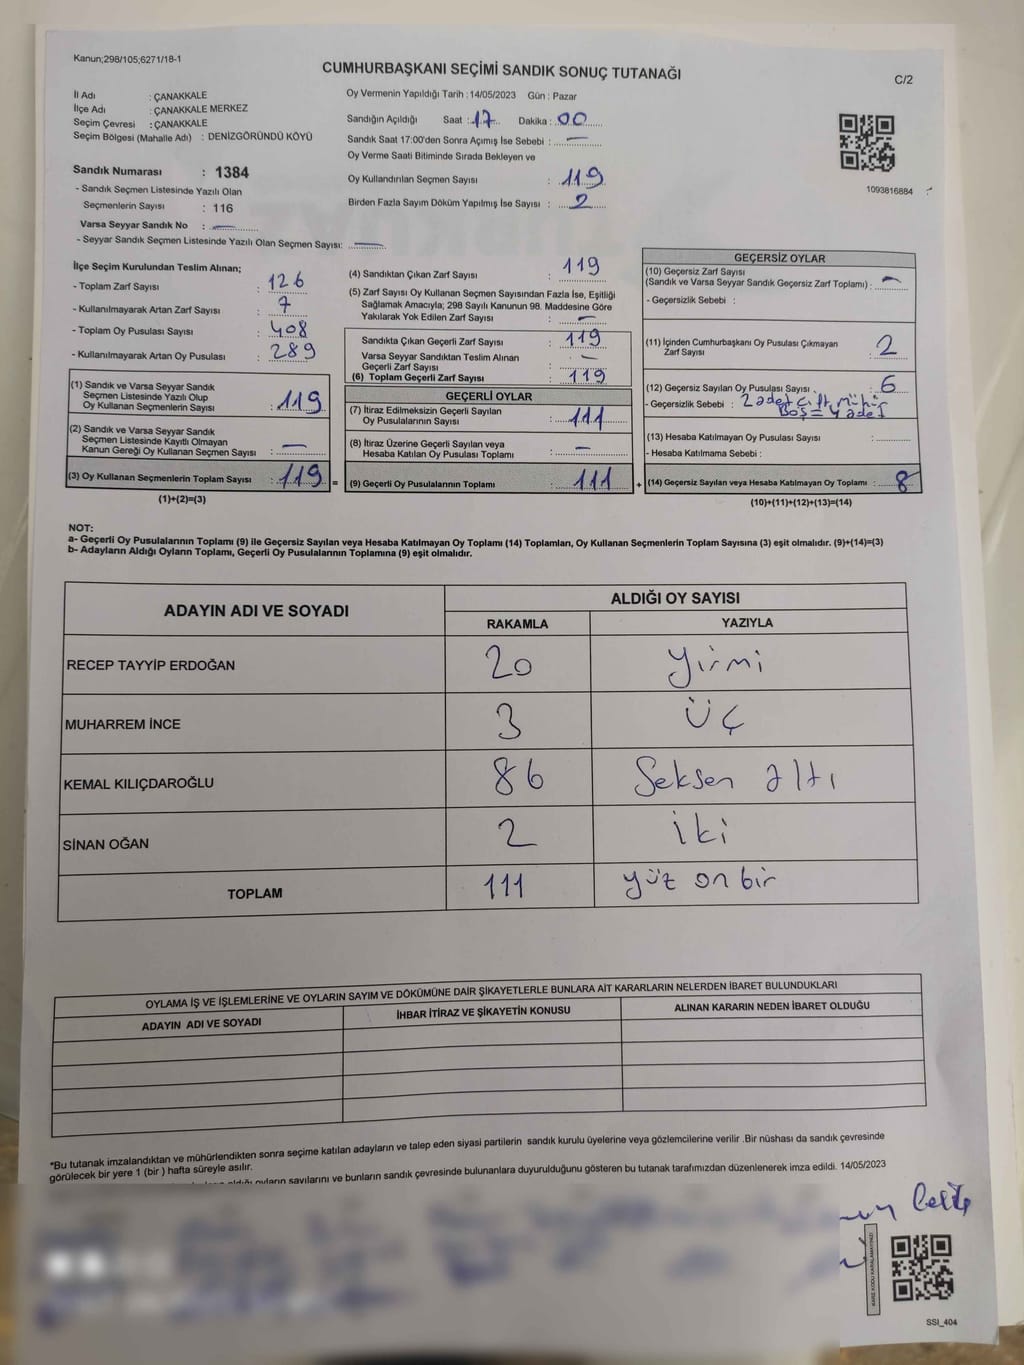 Kanun;298/105;6271/18-1
CUMHURBAŞKANI SEÇİMİ SANDIK SONUÇ TUTANAĞI
C/2
İl Adı : ÇANAKKALE
İlçe Adı : ÇANAKKALE MERKEZ
Seçim Çevresi : ÇANAKKALE
Seçim Bölgesi (Mahalle Adı) : DENİZGÖRÜNDÜ KÖYÜ
Sandık Numarası : 1384
- Sandık Seçmen Listesinde Yazılı Olan
Seçmenlerin Sayısı : 116
Varsa Seyyar Sandık No : —
- Seyyar Sandık Seçmen Listesinde Yazılı Olan Seçmen Sayısı: —
Oy Vermenin Yapıldığı Tarih :14/05/2023 Gün : Pazar
Sandığın Açıldığı Saat : 17 Dakika : 00
Sandık Saat 17:00'den Sonra Açımış İse Sebebi : —
Oy Verme Saati Bitiminde Sırada Bekleyen ve
Oy Kullandırılan Seçmen Sayısı : 119
Birden Fazla Sayım Döküm Yapılmış İse Sayısı : 2
1093816884
İlçe Seçim Kurulundan Teslim Alınan;
- Toplam Zarf Sayısı : 126
- Kullanılmayarak Artan Zarf Sayısı : 7
- Toplam Oy Pusulası Sayısı : 408
- Kullanılmayarak Artan Oy Pusulası : 289
(1) Sandık ve Varsa Seyyar Sandık
Seçmen Listesinde Yazılı Olup
Oy Kullanan Seçmenlerin Sayısı : 119
(2) Sandık ve Varsa Seyyar Sandık
Seçmen Listesinde Kayıtlı Olmayan
Kanun Gereği Oy Kullanan Seçmen Sayısı : —
(3) Oy Kullanan Seçmenlerin Toplam Sayısı : 119 =
(1)+(2)=(3)
(4) Sandıktan Çıkan Zarf Sayısı : 119
(5) Zarf Sayısı Oy Kullanan Seçmen Sayısından Fazla İse, Eşitliği
Sağlamak Amacıyla; 298 Sayılı Kanunun 98. Maddesine Göre
Yakılarak Yok Edilen Zarf Sayısı : —
Sandıkta Çıkan Geçerli Zarf Sayısı : 119
Varsa Seyyar Sandıktan Teslim Alınan
Geçerli Zarf Sayısı : —
(6) Toplam Geçerli Zarf Sayısı : 119
GEÇERLİ OYLAR
(7) İtiraz Edilmeksizin Geçerli Sayılan
Oy Pusulalarının Sayısı : 111
(8) İtiraz Üzerine Geçerli Sayılan veya
Hesaba Katılan Oy Pusulası Toplamı : —
(9) Geçerli Oy Pusulalarının Toplamı : 111 +
GEÇERSİZ OYLAR
(10) Geçersiz Zarf Sayısı
(Sandık ve Varsa Seyyar Sandık Geçersiz Zarf Toplamı) : —
- Geçersizlik Sebebi :
(11) İçinden Cumhurbaşkanı Oy Pusulası Çıkmayan
Zarf Sayısı : 2
(12) Geçersiz Sayılan Oy Pusulası Sayısı : 6
- Geçersizlik Sebebi : 2 adet çift mühür
Boş= 4 adet
(13) Hesaba Katılmayan Oy Pusulası Sayısı :
- Hesaba Katılmama Sebebi :
(14) Geçersiz Sayılan veya Hesaba Katılmayan Oy Toplamı : 8
(10)+(11)+(12)+(13)=(14)
NOT:
a- Geçerli Oy Pusulalarının Toplamı (9) ile Geçersiz Sayılan veya Hesaba Katılmayan Oy Toplamı (14) Toplamları, Oy Kullanan Seçmenlerin Toplam Sayısına (3) eşit olmalıdır. (9)+(14)=(3)
b- Adayların Aldığı Oyların Toplamı, Geçerli Oy Pusulalarının Toplamına (9) eşit olmalıdır.
ADAYIN ADI VE SOYADI
ALDIĞI OY SAYISI
RAKAMLA YAZIYLA
RECEP TAYYİP ERDOĞAN 20 yirmi
MUHARREM İNCE 3 üç
KEMAL KILIÇDAROĞLU 86 Seksen altı
SİNAN OĞAN 2 iki
TOPLAM 111 yüz on bir
OYLAMA İŞ VE İŞLEMLERİNE VE OYLARIN SAYIM VE DÖKÜMÜNE DAİR ŞİKAYETLERLE BUNLARA AİT KARARLARIN NELERDEN İBARET BULUNDUKLARI
ADAYIN ADI VE SOYADI İHBAR İTİRAZ VE ŞİKAYETİN KONUSU ALINAN KARARIN NEDEN İBARET OLDUĞU
*Bu tutanak imzalandıktan ve mühürlendikten sonra seçime katılan adayların ve talep eden siyasi partilerin sandık kurulu üyelerine ve gözlemcilerine verilir .Bir nüshası da sandık çevresinde
görülecek bir yere 1 (bir ) hafta süreyle asılır.
oyların sayılarını ve bunların sandık çevresinde bulunanlara duyurulduğunu gösteren bu tutanak tarafımızdan düzenlenerek imza edildi. 14/05/2023
KARE KODU KARALAMAYINIZ!
SSI_404